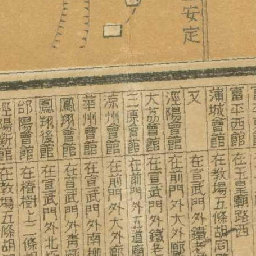 安定
富平西館 在王皇廟路西
蒲城會館 在教場五條胡同路
又 在宣武門外鐵老
涇陽會館 在前門外大外廊
大荔會館 在宣武門外鐵老
三原會館 在前門外五道廟
涼州會館 在前門外大外廊
華州會館 在宣武門外南柳
鳳翔會館 在宣武門外青廠
鳳翔後館 在宣武門外北
郃陽會館 在椿樹上二條
涇陽新館 在教場五條胡